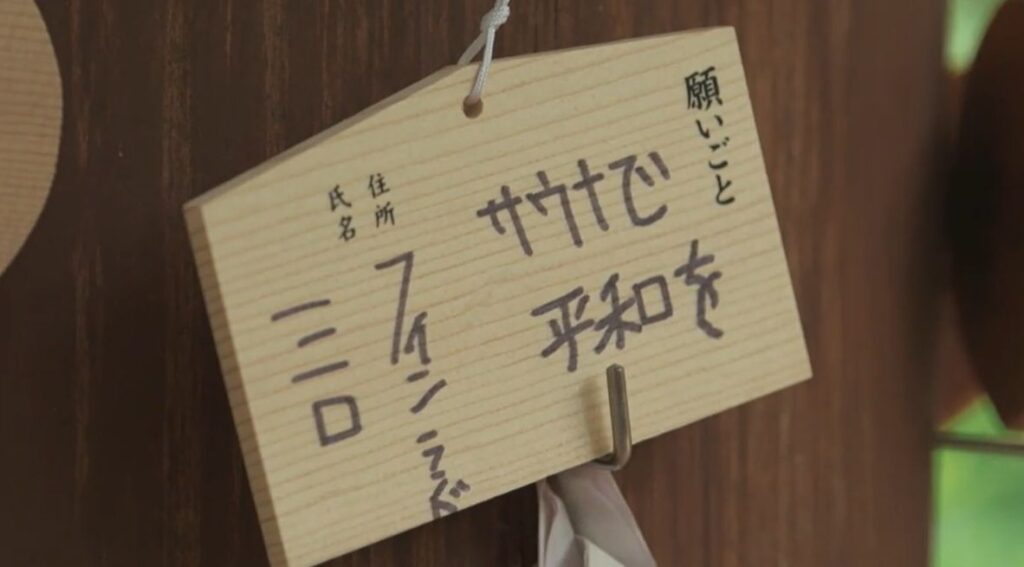 願いごと
サウナで
平和を
住所
フインラド
氏名
ミロ